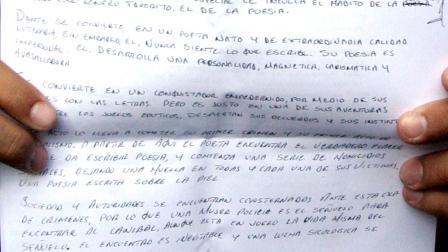 GENERO FAVORITO, EL DE LA POESIA.
DANTE SE CONVIERTE EN UN POETA NATO Y DE EXTRAORDINARIA CALIDAD
LITERARIA, SIN EMBARGO, EL, NUNCA SIENTE LO QUE ESCRIBE. SU POESIA ES
IMPERSONAL. EL, DESARROLLA UNA PERSONALIDAD, MAGNETICA, CARISMATICA Y
AVASALLADORA
CONVIERTE EN UN CONQUISTADOR EMPEDERNIDO, POR MEDIO DE SUS
CON LAS LETRAS. PERO ES JUSTO EN UNA DE SUS AVENTURAS
LOS JUEGOS EROTICOS, DESPIERTAN SUS RECUERDOS Y SUS INSTINT
LO LLEVA A COMETER SU PRIMER CRIMEN Y SU PRIMER
A PARTIR DE AQUI EL POETA ENCUENTRA EL VERDADERO PLACER
DA ESCRIBIR POESIA, Y COMIENZA UNA SERIE DE HOMICIDIOS
DEJANDO UNA HUELLA EN TODAS Y CADA UNA DE SUS VICTIMAS,
UNA POESIA ESCRITA SOBRE LA PIEL
SOCIEDAD Y AUTORIDADES SE ENCUENTRAN CONSTERNADAS ANTE ESTA OLA
DE CRIMENES, POR LO QUE UNA MUJER POLICIA ES EL SEÑUELO PARA
ENCONTRAR AL CANIBAL, AUNQUE ESTA EN JUEGO LA VIDA MISMA DEL
SEÑUELO. EL ENCUENTRO ES INEVITABLE Y UNA LUCHA SICOLOGICA SE